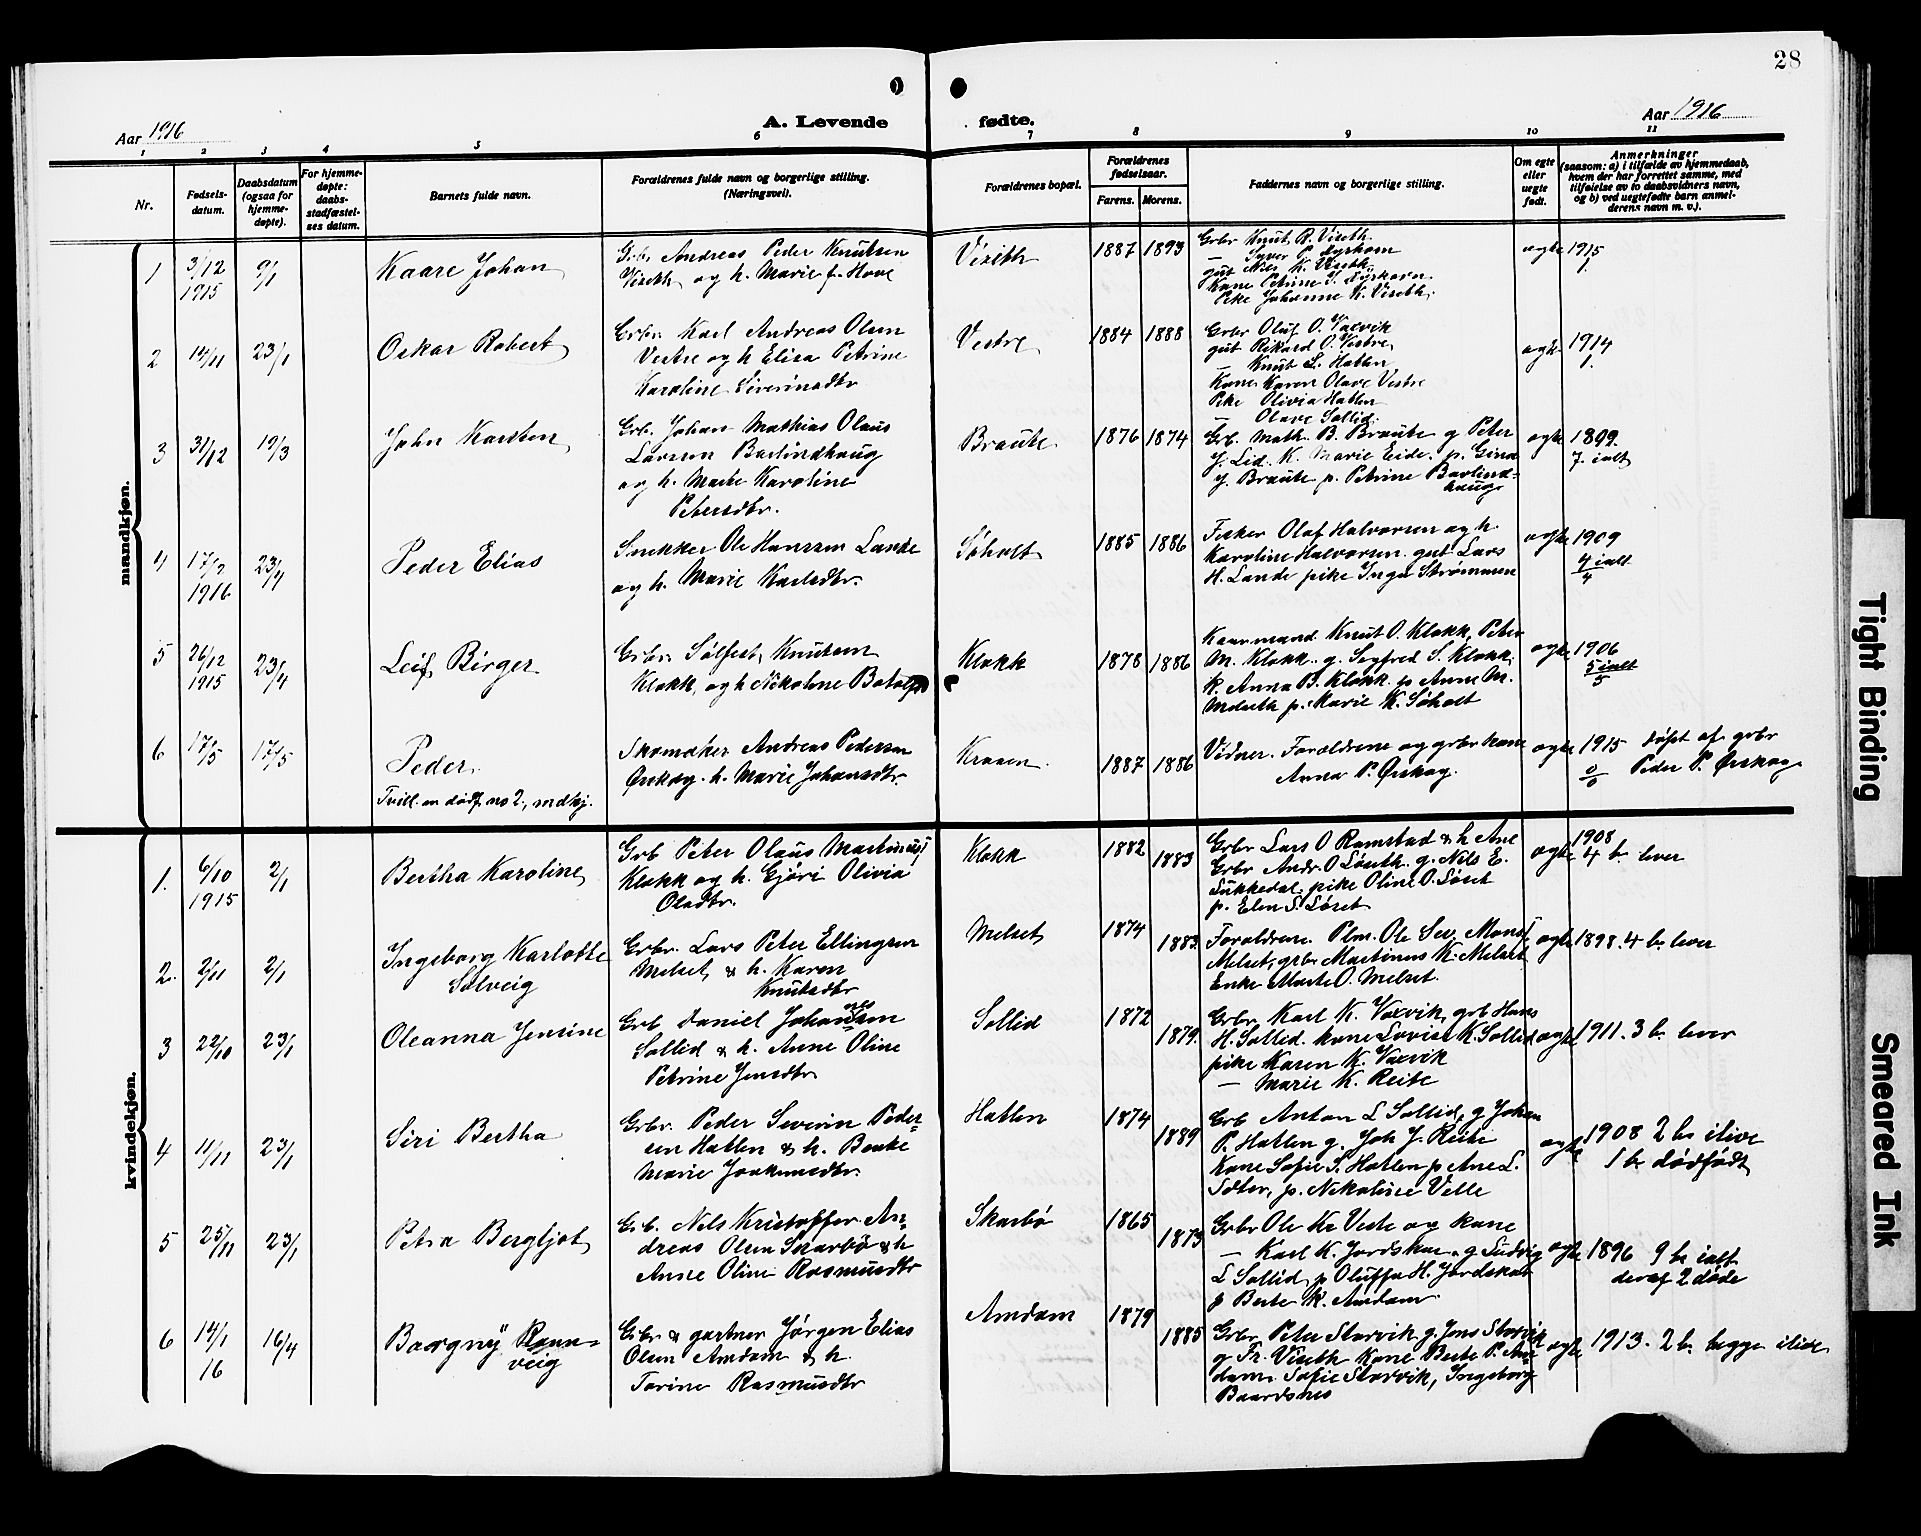 28
Aar 1916
A. Levende fødte.
Aar 1916
1 2 3 4 5 6 7 8 9 10 11
Nr.
Fødsels-
datum.
Daabsdatum
(ogsaa for
hjemme-
døpte).
For hjemme-
døpte:
daabs-
stadfæstel-
ses datum.
Barnets fulde navn.
Forældrenes fulde navn og borgerlige stilling.
(Næringsvei).
Forældrenes bopæl.
Forældrenes
fødselsaar.
Farens. Morens.
Faddernes navn og borgerlige stilling.
Om egte
eller
uegte
født.
Anmerkninger
(saasom: a) i tilfælde av hjemmedaab,
hvem der har forrettet samme, med
tilføielse av to daabsvidners navn,
og b) ved uegtefødte barn anmel-
derens navn m. v.).
mandkjøn.
1
3/12
1915
9/1
Kaare Johan
Grb. Andreas Peder Knutsen
Viseth og h. Marie f. Hove
Viseth
1887 1893
Grbr Knut R. Viseth
— Syver P. Lyshavn
gut Nils K. Viseth
Kone Petrine S. Lyshavn
Pike Johanne K. Viseth.
egte
1915
1.
2
14/11
23/1
Oskar Robert
Grbr. Karl Andreas Olsen
Vestre og h Elisa Petrine
Karoline Siverinsdtr
Vestre
1884 1888
Grbr Oluf O. Vaxvik
gut Rikard O. Vestre
— Knut L. Hatlen
Kone Karen Olave Vestre
Pike Olivia Hatlen
— Olave Sollid.
egte
1914
1.
3
31/12
19/3
John Karsten
Grb. Johan Mathias Olaus
Larssen Barlindhaug
og h. Marte Karoline
Petersdtr.
Braute
1876 1874
Grb. Math. B. Braute g Peter
J. Lid. K. Marie Eide. p. Gina
J. Braute p. Petrine Barlind-
haug
egte
1899.
7. ialt
4
17/2
1916
23/4
Peder Elias
Snekker Ole Hanssen Lande
og h. Marie Karlsdtr.
Søholt
1885 1886
Fisker Olaf Halvorsen og h.
Karoline Halvorsen. gut Lars
H. Lande pike Inga Strømmen
egte
1909
4 ialt
4
5
26/12
1915
23/4
Leif Birger
Grbr. Sølfest Knutsen
Klokk, og h Nikoline Botolfs
Klokk
1878 1886
Kaarmand Knut O. Klokk, Peter
M. Klokk. g. Sigfred S. Klokk.
k. Anna B. Klokk. p Anne M.
Melseth p. Marie K. Søholt
egte
1906
5 ialt
5
6
17/5
17/5
Peder.
Tvill. en dødf. no 2, mdkj.
Skomaker Andreas Pedersen
Ørskog. h. Marie Johansdtr.
Kroven.
1887 1886
Vidner. Forældrene og grbr kone
Anna P. Ørskog.
egte
1915
0/0
døpt af grbr
Peder P. Ørskog
kvindekjøn.
1.
6/10
1915
2/1
Bertha Karoline
Grb Peter Olaus Martinus
Klokk og h. Gjøri Olivia
Oladtr.
Klokk
1882
1883
Grbr Lars O Ramstad & h Ane
Grbr Andr. O Løseth. g. Nils E.
Lukkedal, pike Oline O. Løset
p. Elen S. Løset
egte
1908
4 br lever
2.
2/11
2/1
Ingeborg Karlotte
Solveig
Grbr. Lars Peter Ellingsen
Melset & h. Karen
Knutsdtr
Melset
1874
1883.
Forældrene. Plm. Ole Sev. Mons
Melset, grbr Martinus K. Melset
Enke Marte O. Melset.
egte
1898. 4 br lever
3
22/10
23/1
Oleanna Jensine
Grb Daniel Johannessen
Sollid & h. Anne Oline
Petrine Jensdtr
Sollid
1872
1879.
Grbr. Karl K. Vaxvik, grb Hans
H. Sollid. kone Lovise K. Sollid
pike Karen K. Vaxvik
— Marie K. Reite
egte
1911. 3 br. lever
4
11/11
23/1
Siri Bertha
Grbr. Peder Severin Peder-
sen Hatlen & h. Bente
Marie Joakimsdtr.
Hatlen
1874
1889
Grb Anton L Sollid, g Johan
P. Hatlen g. Joh J. Reite
Kone Sofie S. Hatlen p Ane L.
Sæter, p. Nikoline Velle
egte
1908 2 br ilive
1 br dødfødt
5
25/11
23/1
Petra Bergljot
Grb. Nils Kristoffer An-
dreas Olsen Skarbø & h
Anne Oline Rasmusdtr
Skarbø
1865
1873
Grbr Ole Kr Veste og kone
— Karl K. Jordskar. g Ludvig
L Sollid, p Oluffa H. Jordskar
p Berte K. Amdam
egte
1896 9 br ialt
deraf 2 døde
6
14/1
16
16/4
Borgny Rann-
veig
Grbr & gartner Jørgen Elias
Olsen Amdam & h.
Torine Rasmusdtr
Amdam
1879
1885
Grbr. Peter Storvik g. Jens Storvik
g Fr. Viseth Kone Berte P. Am-
dam. Sofie Storvik, Ingeborg
Baardsnes
egte
1913. 2 br begge ilive
Tight Binding
Smeared Ink